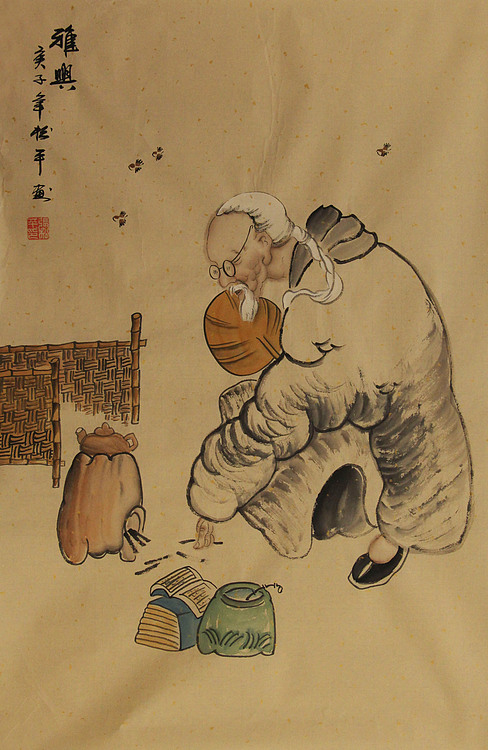 雅興
庚子年松平畫